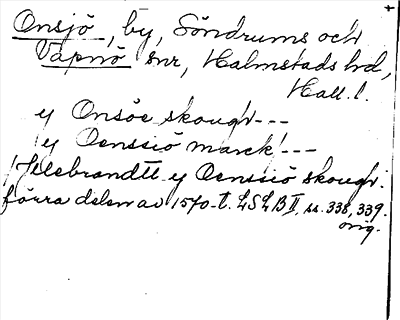 Onsjö, by, Söndrums och
Vapnö snr, Halmstads hd,
Hall. l.
y Onsöe skougr---
y Oenssiö marck---
Helebrandtt y Oenssiö skougr.
förra delen av 1570-t. LSLB II, ss. 338, 339.
orig.